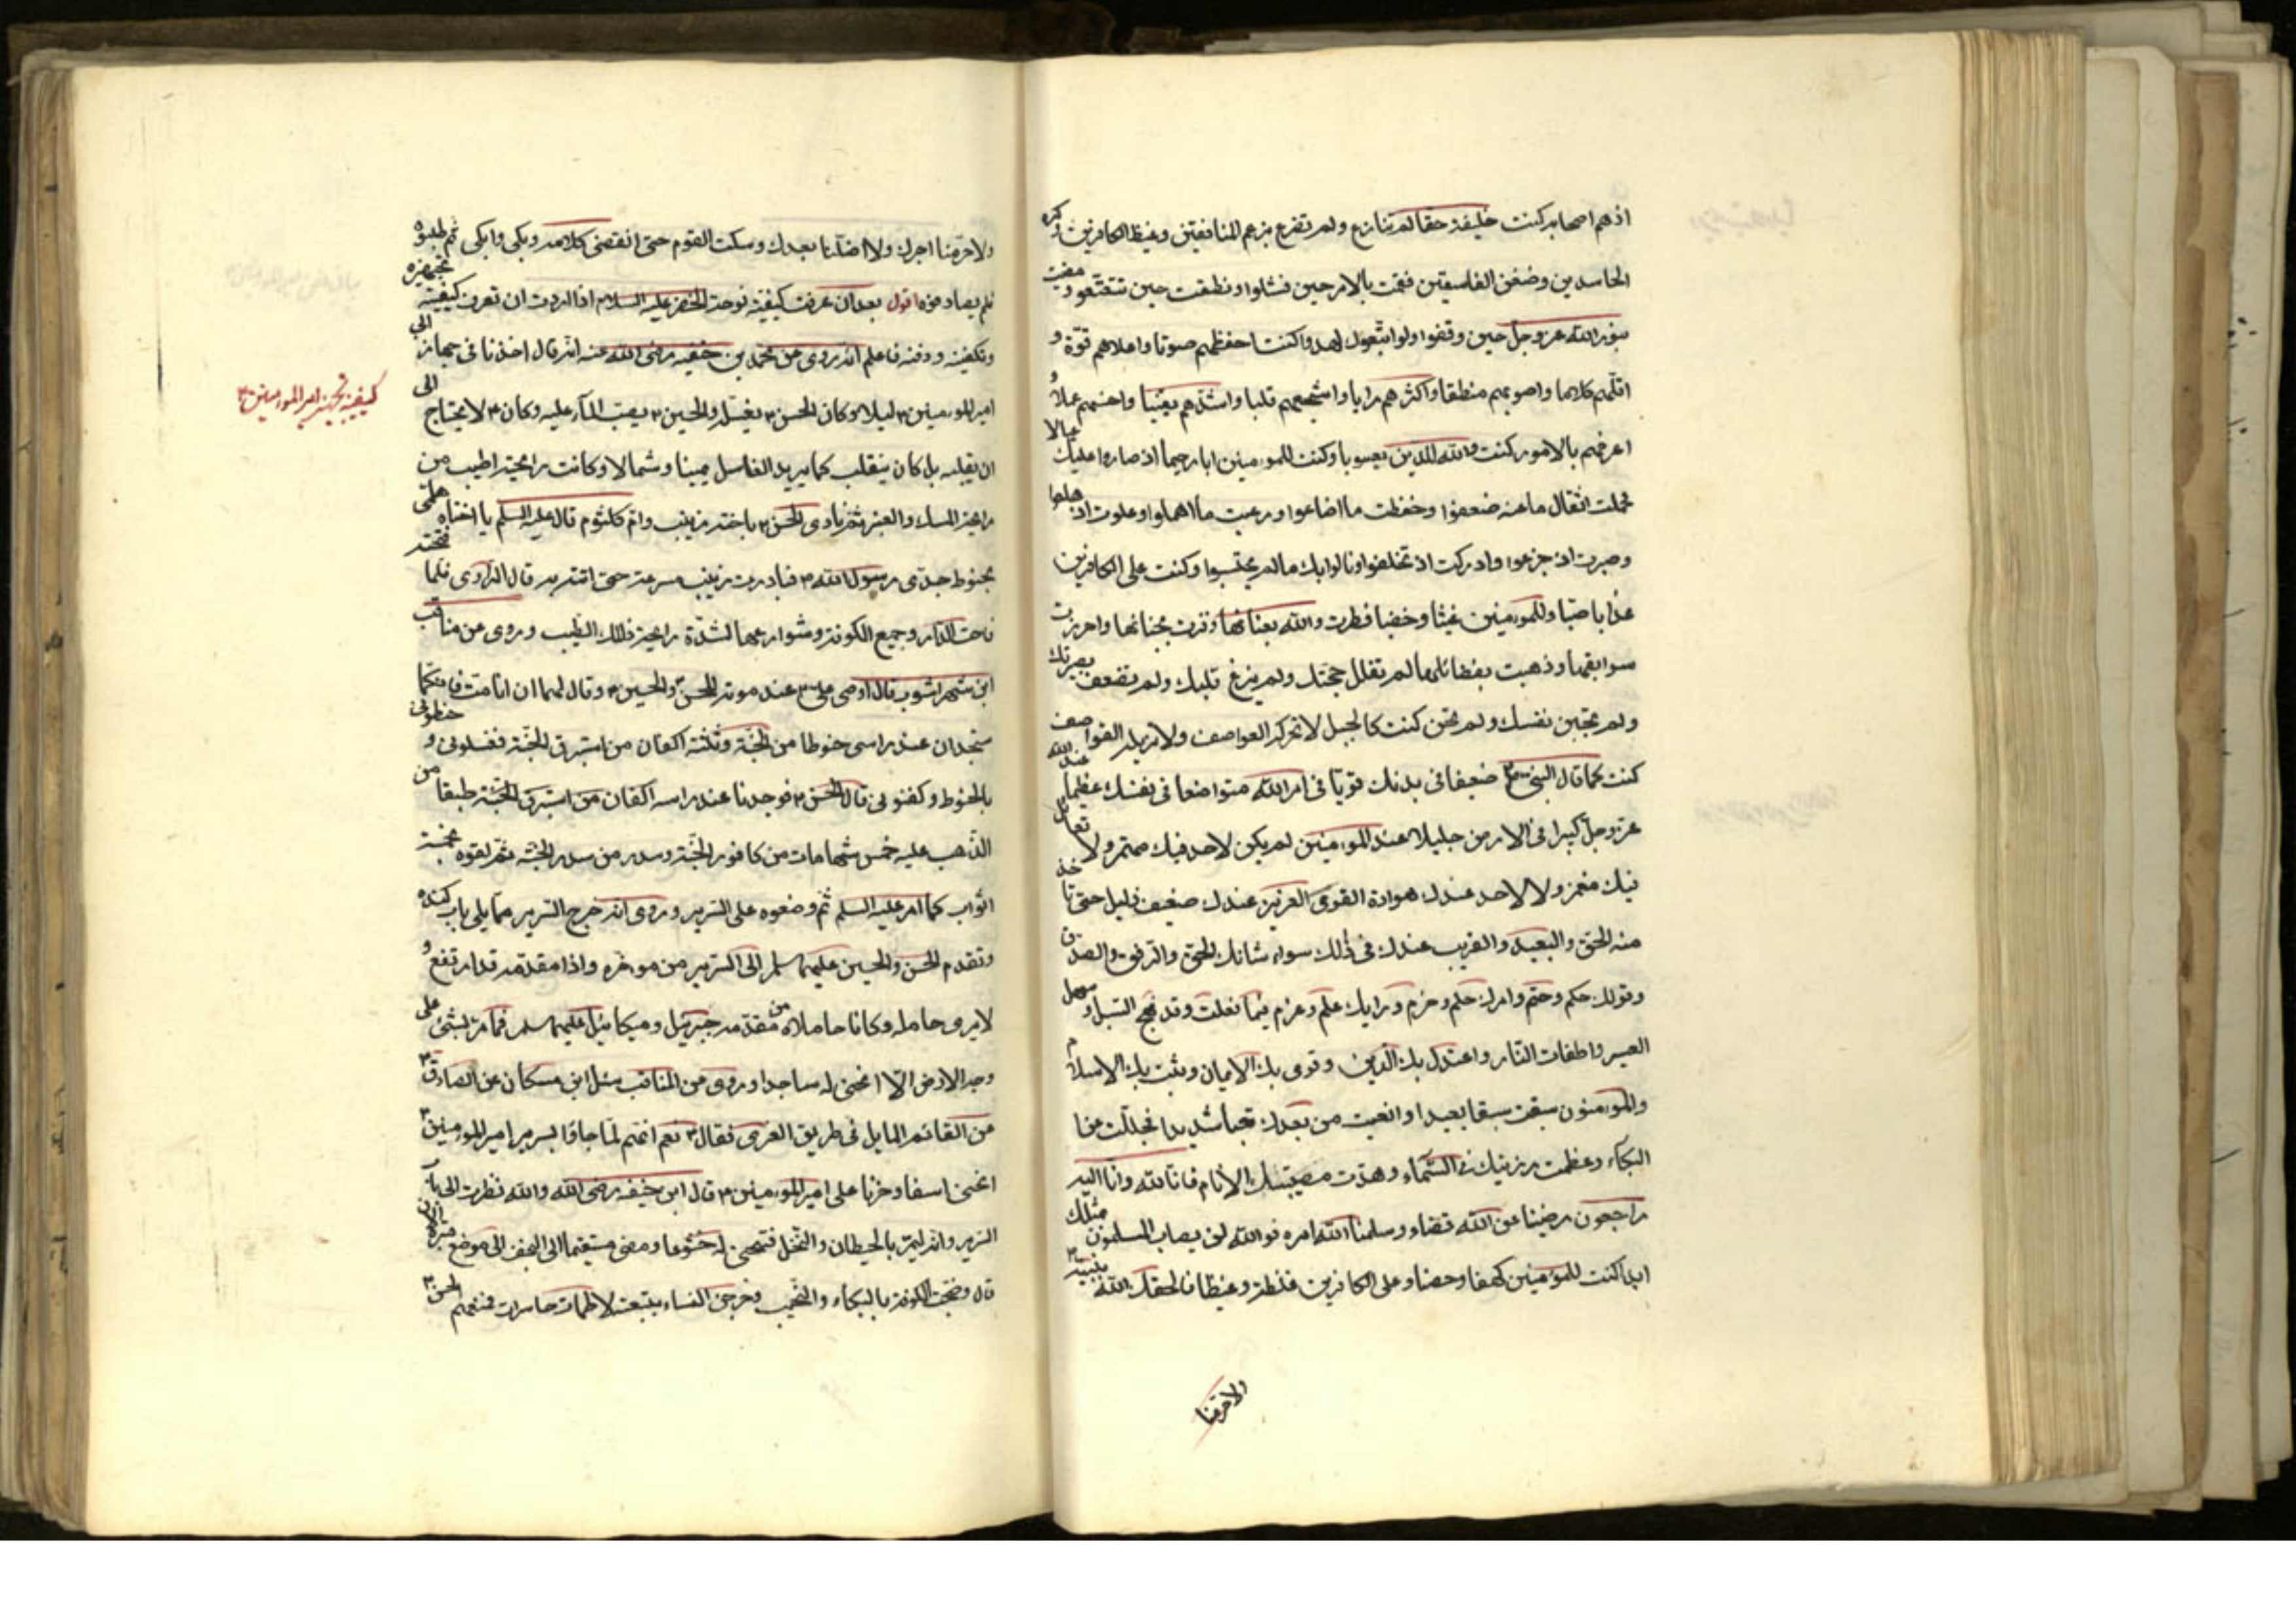 اذهم اصحابه كنت خليفة حقا لم تنازع ولم تضرع بزعم المنافقين وغيظ الكافرين وكره
الحاسدين وضغن الفاسقين فقمت بالامر حين فشلوا ونطقت حين تتعتعوا ومضيت
بنور الله عز وجل حين وقفوا ولو اتبعوك لهدوا كنت اخفظهم صوتا واعلاهم قوة و
اقلهم كلاما واصوبهم منطقا واكثرهم رايا واشجعهم قلبا واشدهم يقينا واحسنهم عملا و
اعرفهم بالامور كنت والله للدين يعسوبا وكنت للمؤمنين ابا رحيما اذ صاروا عليك عيالا
فحملت اثقال ما عنه ضعفوا وحفظت ما اضاعوا ورعيت ما اهملوا وعلوت اذ هلعوا
وصبرت اذ جزعوا وادركت اذ تخلفوا ونالوا بك ما لم يحتسبوا وكنت على الكافرين
عذابا صبا وللمؤمنين غيثا وخصبا فطرت والله بعنانها وفزت بجنانها واحرزت
سوابقها وذهبت بفضائلها لم تفلل حجتك ولم يزغ قلبك ولم تضعف بصيرتك
ولم تجبن نفسك ولم تخن كنت كالجبل لا تحركه العواصف ولا تزيله القواصف
كنت كما قال النبي ص ضعيفا في بدنك قويا في امر الله متواضعا في نفسك عظيما عند الله
عز وجل كبيرا في الارض جليلا عند المؤمنين لم يكن لاحد فيك مهمز ولا لقائل
فيك مغمز ولا لاحد عندك هوادة القوي العزيز عندك ضعيف ذليل حتى تاخذ
منه الحق والبعيد والقريب عندك في ذلك سواء شانك الحق والرفق والصدق
وقولك حكم وحتم وامرك حلم وحزم ورايك علم وعزم فيما فعلت وقد نهج السبيل و سهل
العسير واطفات النار واعتدل بك الدين وقوى بك الايمان وثبت بك الاسلام
والمؤمنون سبقت سبقا بعيدا واتعبت من بعدك تعبا شديدا فجللت عن
البكاء وعظمت رزيتك في السماء وهدت مصيبتك الانام فانا لله وانا اليه
راجعون رضينا عن الله قضاء وسلمنا الله امره فوالله لن يصاب المسلمون مثلك
ابدا كنت للمؤمنين كهفا وحصنا وعلى الكافرين غلظة وغيظا فالحقك الله بنبيه
ولا حرمنا
ولا حرمنا اجرك ولا اضلنا بعدك وسكت القوم حتى انقضى كلامه وبكى وابكى ثم طلبوه
فلم يصادفوه اقول بعد ان عرفت كيفية نوحة الخضر عليه السلام اذا اردت ان تعرف كيفية تجهيزه
وتكفينه ودفنه فاعلم انه روى عن محمد بن حنفيه رضى الله عنه انه قال اخذنا في جهاز ابي
امير المؤمنين ع ليلا وكان الحسن ع يغسل والحسين ع يصب الماء عليه وكان ع لا يحتاج الى
كيفية تجهيز امير المؤمنين ع
ان يقلبه بل كان ينقلب كما يريد الغاسل يمينا وشمالا وكانت رايحته اطيب من
رايحة المسك والعنبر ثم نادى الحسن ع باخته زينب وام كلثوم قال عليه السلم يا اختاه هلمي
بحنوط جدي رسول الله ص فبادرت زينب مسرعة حتى اتته به قال الراوي فلما فتحته
فاحت الدار وجميع الكوفة وشوارعها لشدة رايحة ذلك الطيب وروى عن مناقب
ابن شهراشوب قال اوصى علي ع عند موته للحسن والحسين ع وقال لهما ان انا مت فانكما
ستجدان عند راسي حنوطا من الجنة وثلثة اكفان من استبرق الجنة فغسلوني و حنطوني
بالحنوط وكفنوني قال الحسن ع فوجدنا عند راسه اكفان من استبرق الجنة طبقا من
الذهب عليه خمس شمامات من كافور الجنة وسدر من سدر الجنة ثم لفوه بخمسة
اثواب كما امر عليه السلم ثم وضعوه على السرير وروى انه خرج السرير مما يلي باب كنده
وتقدم الحسن والحسين عليهما سلم الى السرير من موخره واذا مقدمه قد ارتفع و
لا يرى حامله وكانا حاملاه من مقدمه جبرئيل وميكائيل عليهما سلم فما مر بشئ على
وجه الارض الا انحنى له ساجدا وروى عن المناقب سئل ابن مسكان عن الصادق ع
عن القائم المايل في طريق الغرى فقال ع نعم انهم لما جاؤا بسرير امير المؤمنين ع
انحنى اسفا وحزنا على امير المؤمنين ع قال ابن حنفيه رضى الله والله نظرت الى
السرير وانه ليمر بالحيطان والنخل فتنحنى له خشوعا ومضى مستقيما الى النجف الى موضع قبره
قال وضجت الكوفة بالبكاء والنحيب وخرجن النساء يتبعنه لاطمات حاسرات فمنعهم الحسن ع